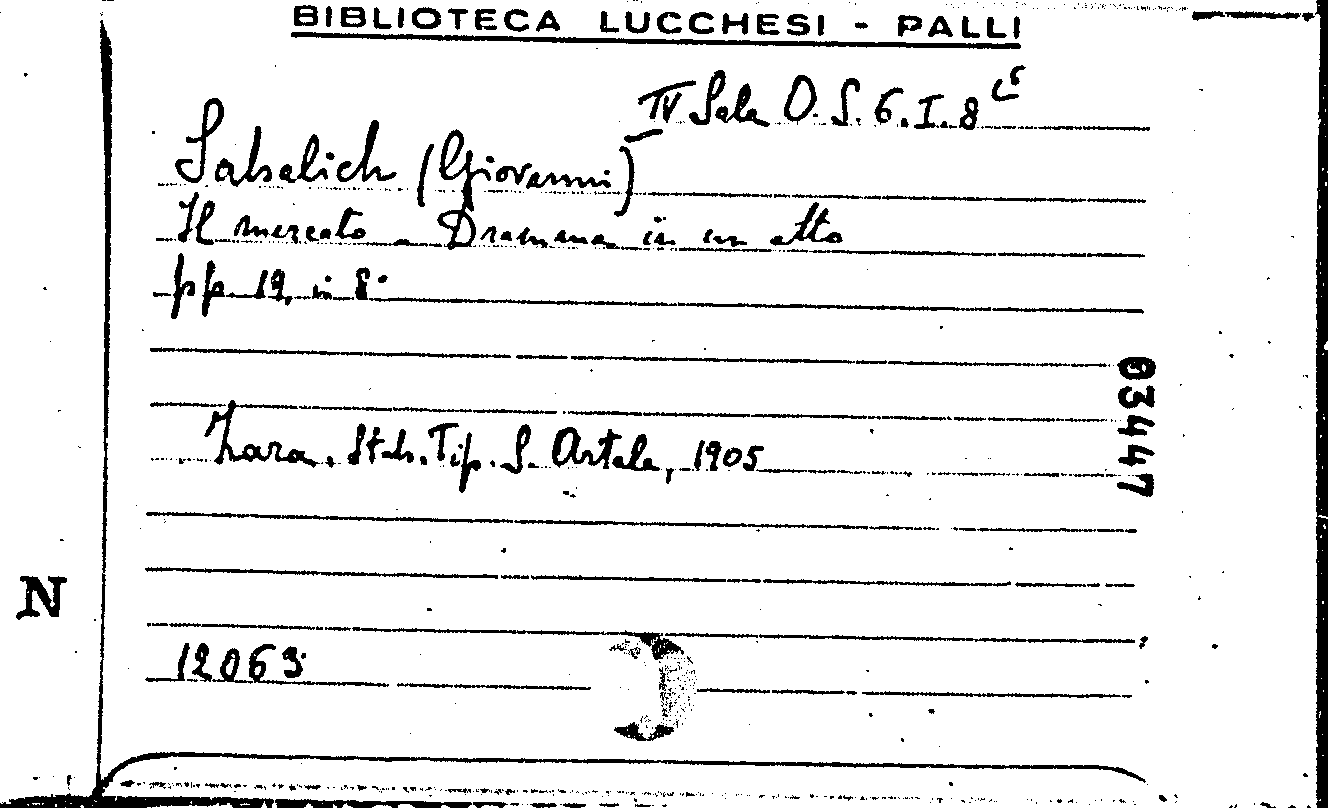 BIBLIOTECA LUCCHESI - PALLI
IV Sala O. S. 6. I. 8
Sabalich (Giovanni)
Il mercato - Dramma in un atto
pp. 19, in 8°
Zara. Stab. Tip. S. Artale, 1905
03447
N
12063